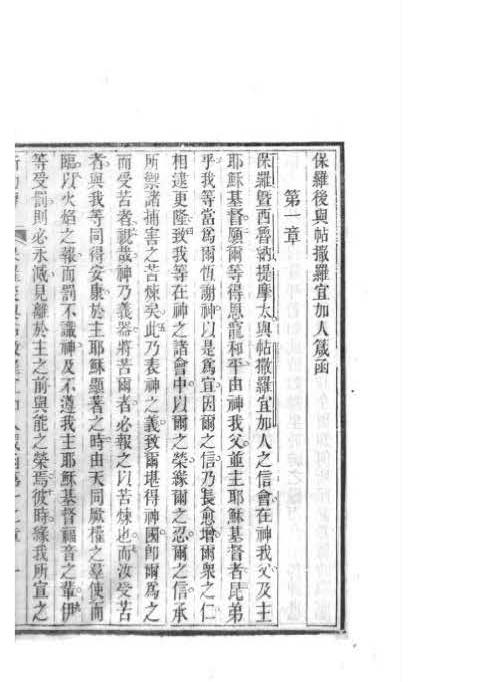 保羅後與帖撒羅宜加人箴函
第一章
保羅暨西魯納提摩太與帖撒羅宜加人之信會在神我父及主
耶穌基督願爾等得恩寵和平由神我父並主耶穌基督者昆弟
乎我等當爲爾恆謝神以是爲宜因爾之信乃長愈增爾衆之仁
相逮更隆致我等在神之諸會中以爾之榮緣爾之忍爾之信承
所禦諸捕害之苦煉矣此乃表神之義致爾堪得神國卽爾爲之
而受苦者視哉神乃義器將苦爾者必報之以苦煉也而汝受苦
者與我等同得安康於主耶穌顯著之時由天同厥權之羣使而
臨以火焰之報而罰不識神及不遵我主耶穌基督福音之輩伊
等受罰則必永滅見離於主之前與能之榮焉彼時緣我所宣之